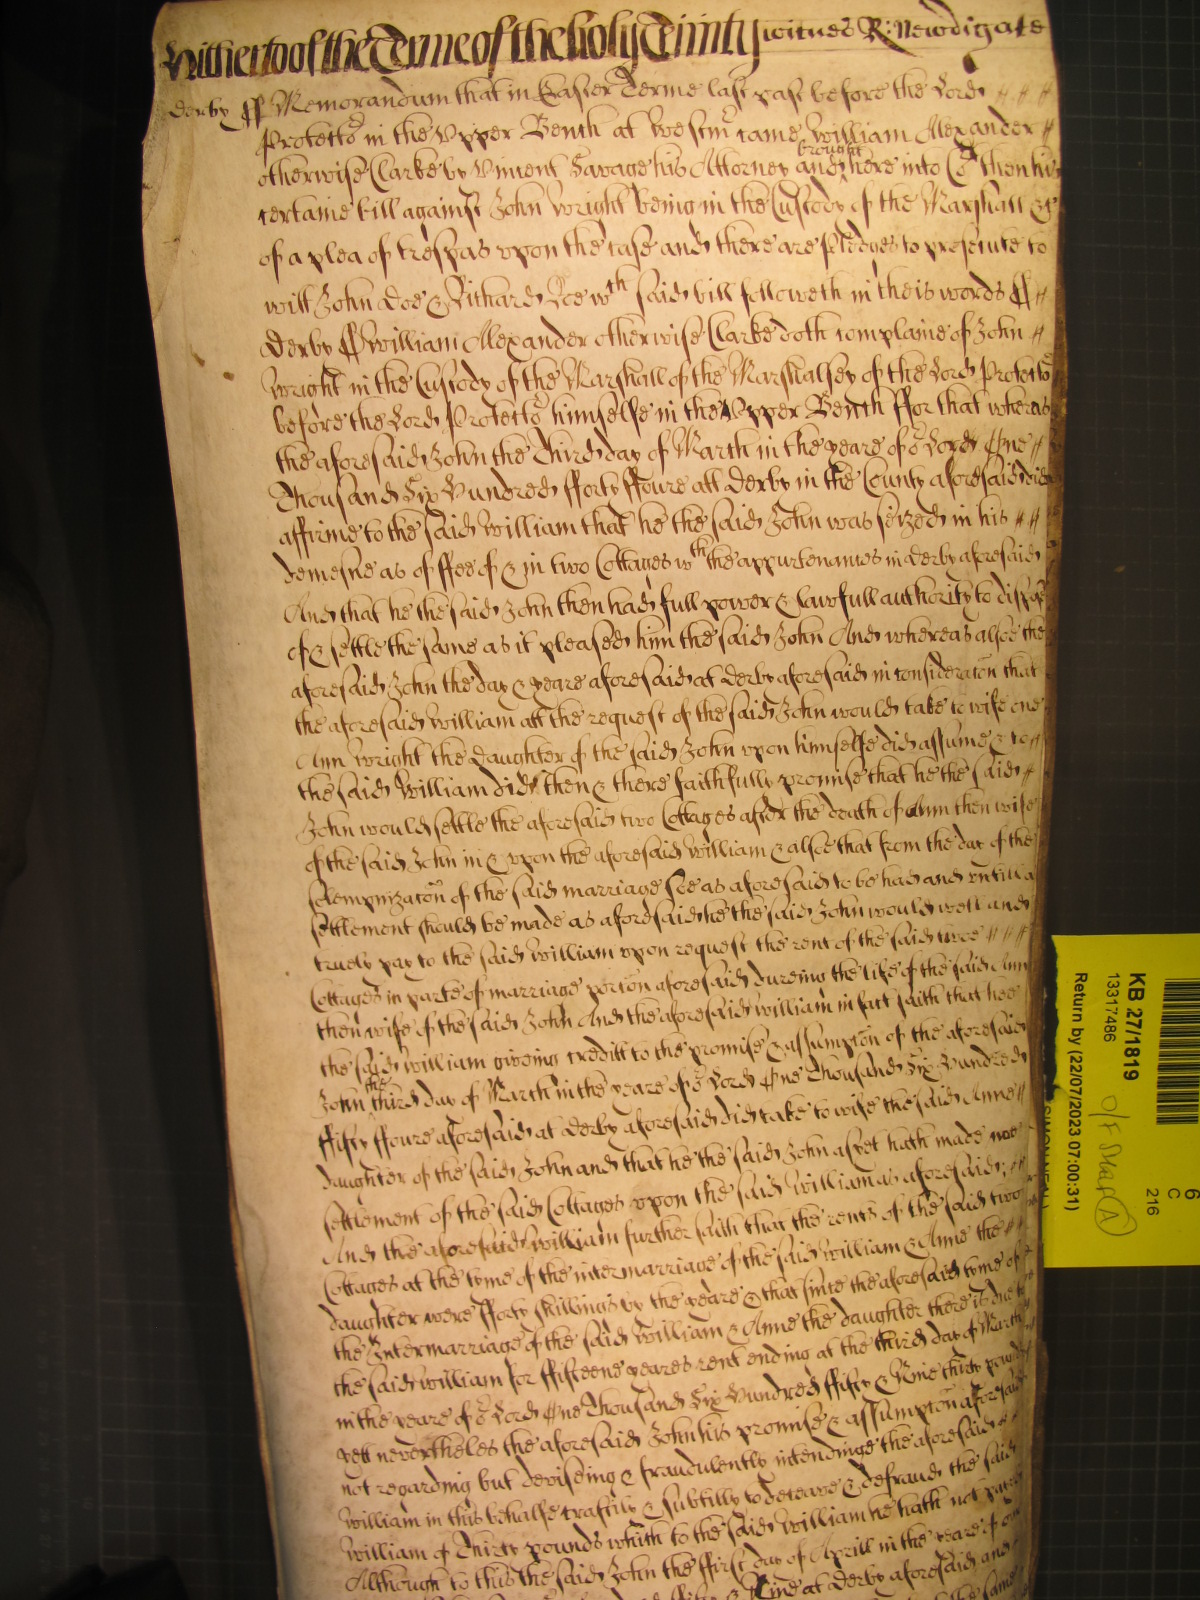 Hitherto of the Terme of the holy Trinity witnes R: Newdigate
Derby ss Memorandum that in Easter Terme last past before the Lord
Protector in the Upper Bench at Westmr came William Alexander
otherwise Clarke by Vincent Savage his Attorney and brought here into Ct then his
certaine bill against John Wright being in the Custody of the Marshall &c
of a plea of trespas upon the case and there are pledges to prosecute to
witt John Doe & Richard Roe wth said bill followeth in theis words ss
Derby ss William Alexander otherwise Clarke doth complaine of John
Wright in the Custody of the Marshall of the Marshalsey of the Lord Protector
before the Lord Protector himselfe in the Upper Bench ffor that whereas
the aforesaid John the Third day of March in the yeare of or Lord One
Thousand Six Hundred fforty ffoure att Derby in the County aforesaid did
affirme to the said William that he the said John was seized in his
demesne as of ffee of & in two Cottages wth the appurtenances in Derby aforesaid
And that he the said John then had full power & lawfull authority to dispose
of & settle the same as it pleased him the said John And whereas alsoe the
aforesaid John the day & yeare aforesaid at Derby aforesaid in consideracon that
the aforesaid William att the request of the said John would take to wife one
Ann Wright the Daughter of the said John upon himselfe did assume & to
the said William did then & there faithfully promise that he the said
John would settle the aforesaid two Cottages after the death of Ann then wife
of the said John in & upon the aforesaid William & alsoe that from the day of the
solempnizacon of the said marriage soe as aforesaid to be had and untill a
settlement should be made as aforesaid he the said John would well and
truely pay to the said William upon request the rent of the said twoe
Cottages in parte of marriage porcon aforesaid dureing the life of the said Ann
then wife of the said John And the aforesaid William in fact saith that hee
the said William giveing creditt to the promise & assumpcon of the aforesaid
John the third day of March in the yeare of or Lord One Thousand Six Hundred
ffifty ffoure aforesaid at Derby aforesaid did take to wife the said Anne
daughter of the said John and that he the said John as yet hath made noe
settlement of the said Cottages upon the said William as aforesaid;
And the aforesaid William further saith that the rents of the said two
Cottages at the tyme of the intermarriage of the said William & Anne the
daughter were fforty shillings by the yeare & that since the aforesaid tyme of
the Intermarriage of the said William & Anne the daughter there is due to
the said William for ffifteene yeares rent ending at the third day of March
in the yeare of or Lord One Thousand Six Hundred ffifty & Nine thirty pounds
yett nevertheles the aforesaid John his promise & assumpcon aforesaid
not regarding but deviseing & fraudulently intendinge the aforesaid
William in this behalfe craftily & subtilly to deceave & defraud the said
William of Thirty pounds which to the said William he hath not payed
Although to this the said John the ffirst day of Aprill in the yeare of our
ffifty & Nine at Derby aforesaid and
the same
KB 27/1819
13317486
Return by (22/07/2023 07:00:31)
6
C
216